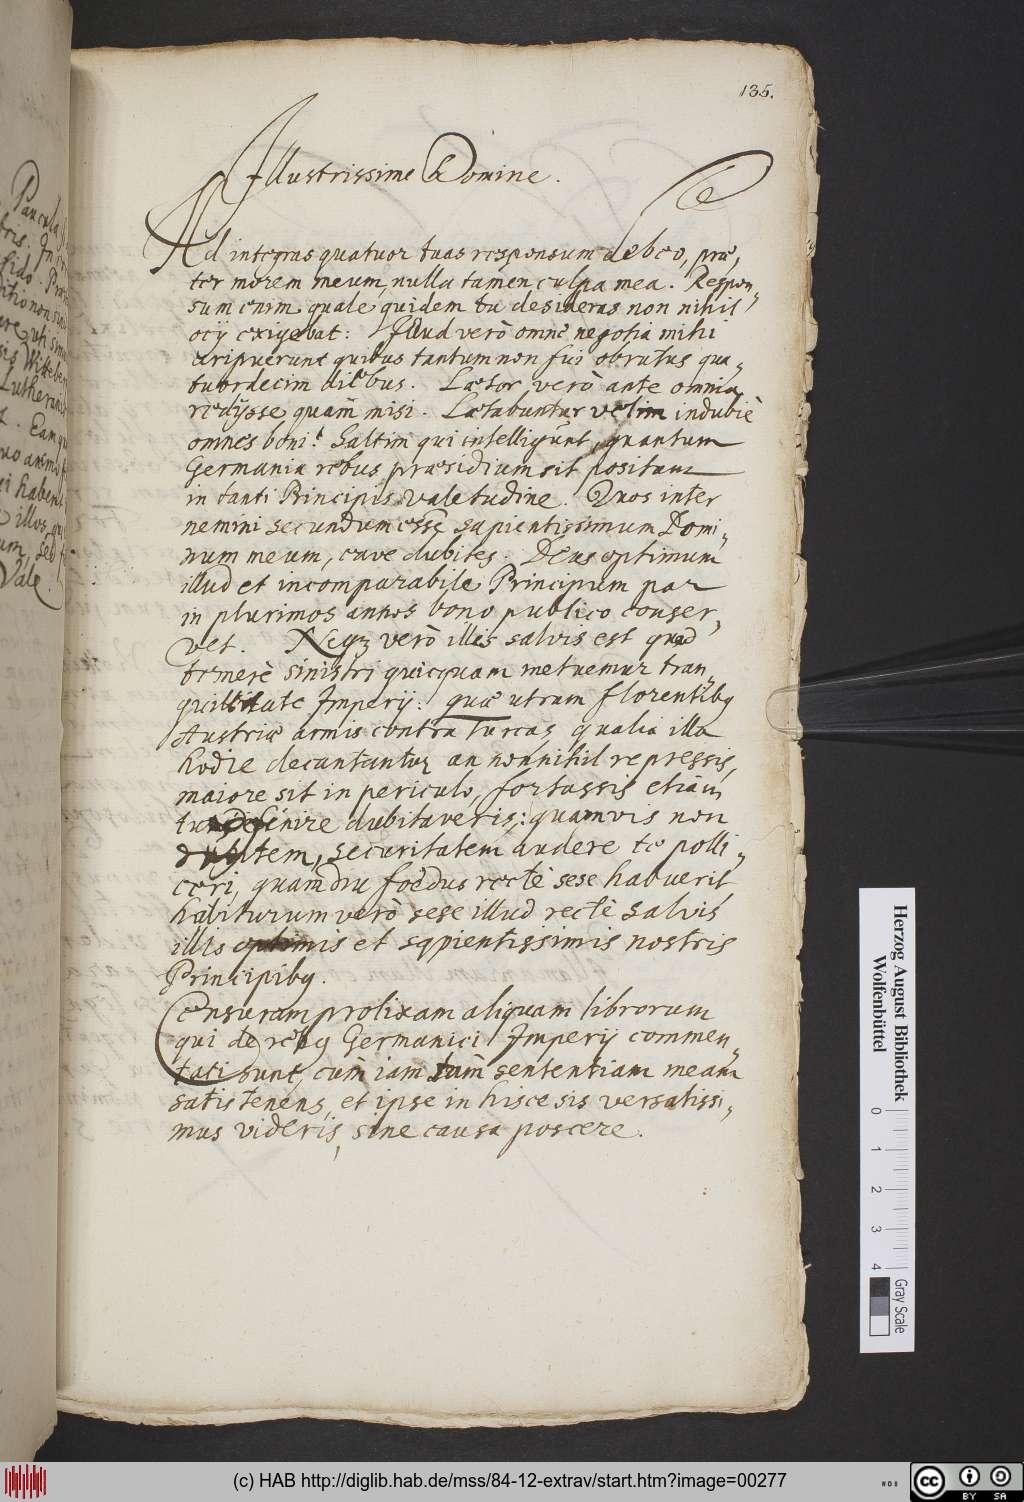 135.
Illustrissime Domine.
Ad integras quatuor tuas responsum debeo, præ,
ter morem meum, nulla tamen culpa mea. Respon,
sum enim quale quidem tu desideras non nihil
ocij exigebat: Illud verò omne negotia mihi
eripuerunt quibus tantum non fui obrutus qua,
tuordecim diebus. Lætor verò ante omnia
redijsse quam misi. Lætabuntur velim indubiè
omnes boni: Saltim qui intelligunt, quantum
Germaniæ rebus præsidium sit positum
in tanti Principis valetudine. Quos inter
nemini secundum esse sapientissimum Domi,
num meum, cave dubites. Deus optimum
illud et incomparabile Principum par
in plurimos annos bono publico conser,
vet. Neqz verò illis salvis est quod
temerè sinistri quicquam metuemur tran,
quillitate Imperij: quæ utrum florentibq
Austriæ armis contra turcas, qualia illa
hodie decantantur, an nonnihil repressis,
maiore sit in periculo, fortassis etiam
definire dubitaveris: quamvis non
securitatem audere te polli,
ceri, quamdiu foedus rectè sese habuerit
habiturum verò sese illud rectè salvis
illis optimis et sapientissimis nostris
Principibq.
Censuram prolixam aliquam librorum
qui de rebq Germanici Imperij commen,
tati sunt, cùm iam tùm sententiam meam
satis tenens, et ipse in hisce sis versatissi,
mus videris, sine causa poscere.
Pancula
fido.
Lutherani
ei haben
illos, qu
um, sed
Vale.
Herzog August Bibliothek
Wolfenbüttel
0 1 2 3 4
Gray Scale
(c) HAB http://diglib.hab.de/mss/84-12-extrav/start.htm?image=00277
cc BY SA